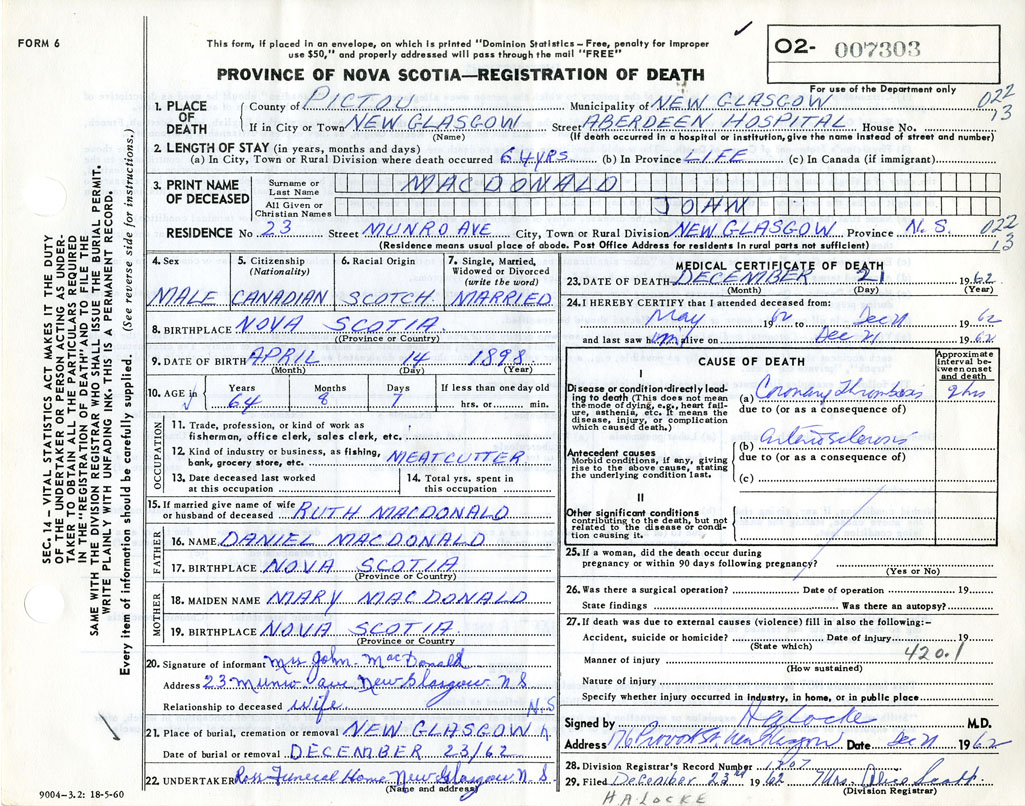 FORM 6
This form, if placed in an envelope, on which is printed "Dominion Statistics – Free, penalty for improper
use $50," and properly addressed will pass through the mail "FREE"
O2- 007303
For use of the Department only
PROVINCE OF NOVA SCOTIA—REGISTRATION OF DEATH
1. PLACE OF DEATH
County of PICTOU Municipality of NEW GLASGOW 022
If in City or Town NEW GLASGOW Street ABERDEEN HOSPITAL House No. 13
(Name) (If death occurred in a hospital or institution, give the name instead of street and number)
2. LENGTH OF STAY (in years, months and days)
(a) In City, Town or Rural Division where death occurred 64 YRS (b) In Province LIFE (c) In Canada (if immigrant)
3. PRINT NAME OF DECEASED
Surname or Last Name MACDONALD
All Given or Christian Names JOHN
RESIDENCE No. 23 Street MUNRO AVE City, Town or Rural Division NEW GLASGOW Province N.S. 022
(Residence means usual place of abode. Post Office Address for residents in rural parts not sufficient) 13
4. Sex MALE
5. Citizenship (Nationality) CANADIAN
6. Racial Origin SCOTCH
7. Single, Married, Widowed or Divorced (write the word) MARRIED
8. BIRTHPLACE NOVA SCOTIA
(Province or Country)
9. DATE OF BIRTH APRIL 14 1898
(Month) (Day) (Year)
10. AGE in Years Months Days If less than one day old
64 8 7 hrs. or min.
OCCUPATION
11. Trade, profession, or kind of work as
fisherman, office clerk, sales clerk, etc.
12. Kind of industry or business, as fishing,
bank, grocery store, etc. MEATCUTTER
13. Date deceased last worked
at this occupation
14. Total yrs. spent in
this occupation
15. If married give name of wife
or husband of deceased RUTH MACDONALD
FATHER
16. NAME DANIEL MACDONALD
17. BIRTHPLACE NOVA SCOTIA
(Province or Country)
MOTHER
18. MAIDEN NAME MARY MACDONALD
19. BIRTHPLACE NOVA SCOTIA
(Province or Country)
20. Signature of informant Mrs John MacDonald
Address 23 Munro ave New Glasgow N S
Relationship to deceased Wife N.S
21. Place of burial, cremation or removal NEW GLASGOW
Date of burial or removal DECEMBER 23/62
22. UNDERTAKER Ross Funeral Home New Glasgow N. S.
(Name and address)
MEDICAL CERTIFICATE OF DEATH
23. DATE OF DEATH DECEMBER 21 1962
(Month) (Day) (Year)
24. I HEREBY CERTIFY that I attended deceased from:
May 1962 to Dec 21 1962
and last saw him alive on Dec 21 1962
CAUSE OF DEATH
Approximate interval between onset and death
I
Disease or condition directly leading to death (This does not mean the mode of dying, e.g., heart failure, asthenia, etc. It means the disease, injury, or complication which caused death.)
(a) Coronary Thrombosis 2 hrs
due to (or as a consequence of)
Antecedent causes
Morbid conditions, if any, giving rise to the above cause, stating the underlying condition last.
(b) arteriosclerosis
due to (or as a consequence of)
(c)
II
Other significant conditions
contributing to the death, but not related to the disease or condition causing it.
25. If a woman, did the death occur during
pregnancy or within 90 days following pregnancy?
(Yes or No)
26. Was there a surgical operation? Date of operation 19
State findings Was there an autopsy?
27. If death was due to external causes (violence) fill in also the following:-
Accident, suicide or homicide? Date of injury 19
(State which) 420.1
Manner of injury
(How sustained)
Nature of injury
Specify whether injury occurred in industry, in home, or in public place
Signed by H A Locke M.D.
Address 176 Provost St, New Glasgow Date Dec 21 1962
28. Division Registrar's Record Number 1207
29. Filed December 23rd 1962 Mrs. Alice Scott
(Division Registrar)
H A LOCKE
SEC. 14 – VITAL STATISTICS ACT MAKES IT THE DUTY
OF THE UNDERTAKER OR PERSON ACTING AS UNDER-
TAKER TO OBTAIN ALL THE PARTICULARS REQUIRED
IN THE "REGISTRATION OF DEATH" AND TO FILE THE
SAME WITH THE DIVISION REGISTRAR WHO SHALL ISSUE THE BURIAL PERMIT.
WRITE PLAINLY WITH UNFADING INK–THIS IS A PERMANENT RECORD.
Every item of information should be carefully supplied. (See reverse side for instructions.)
9004–3.2: 18-5-60